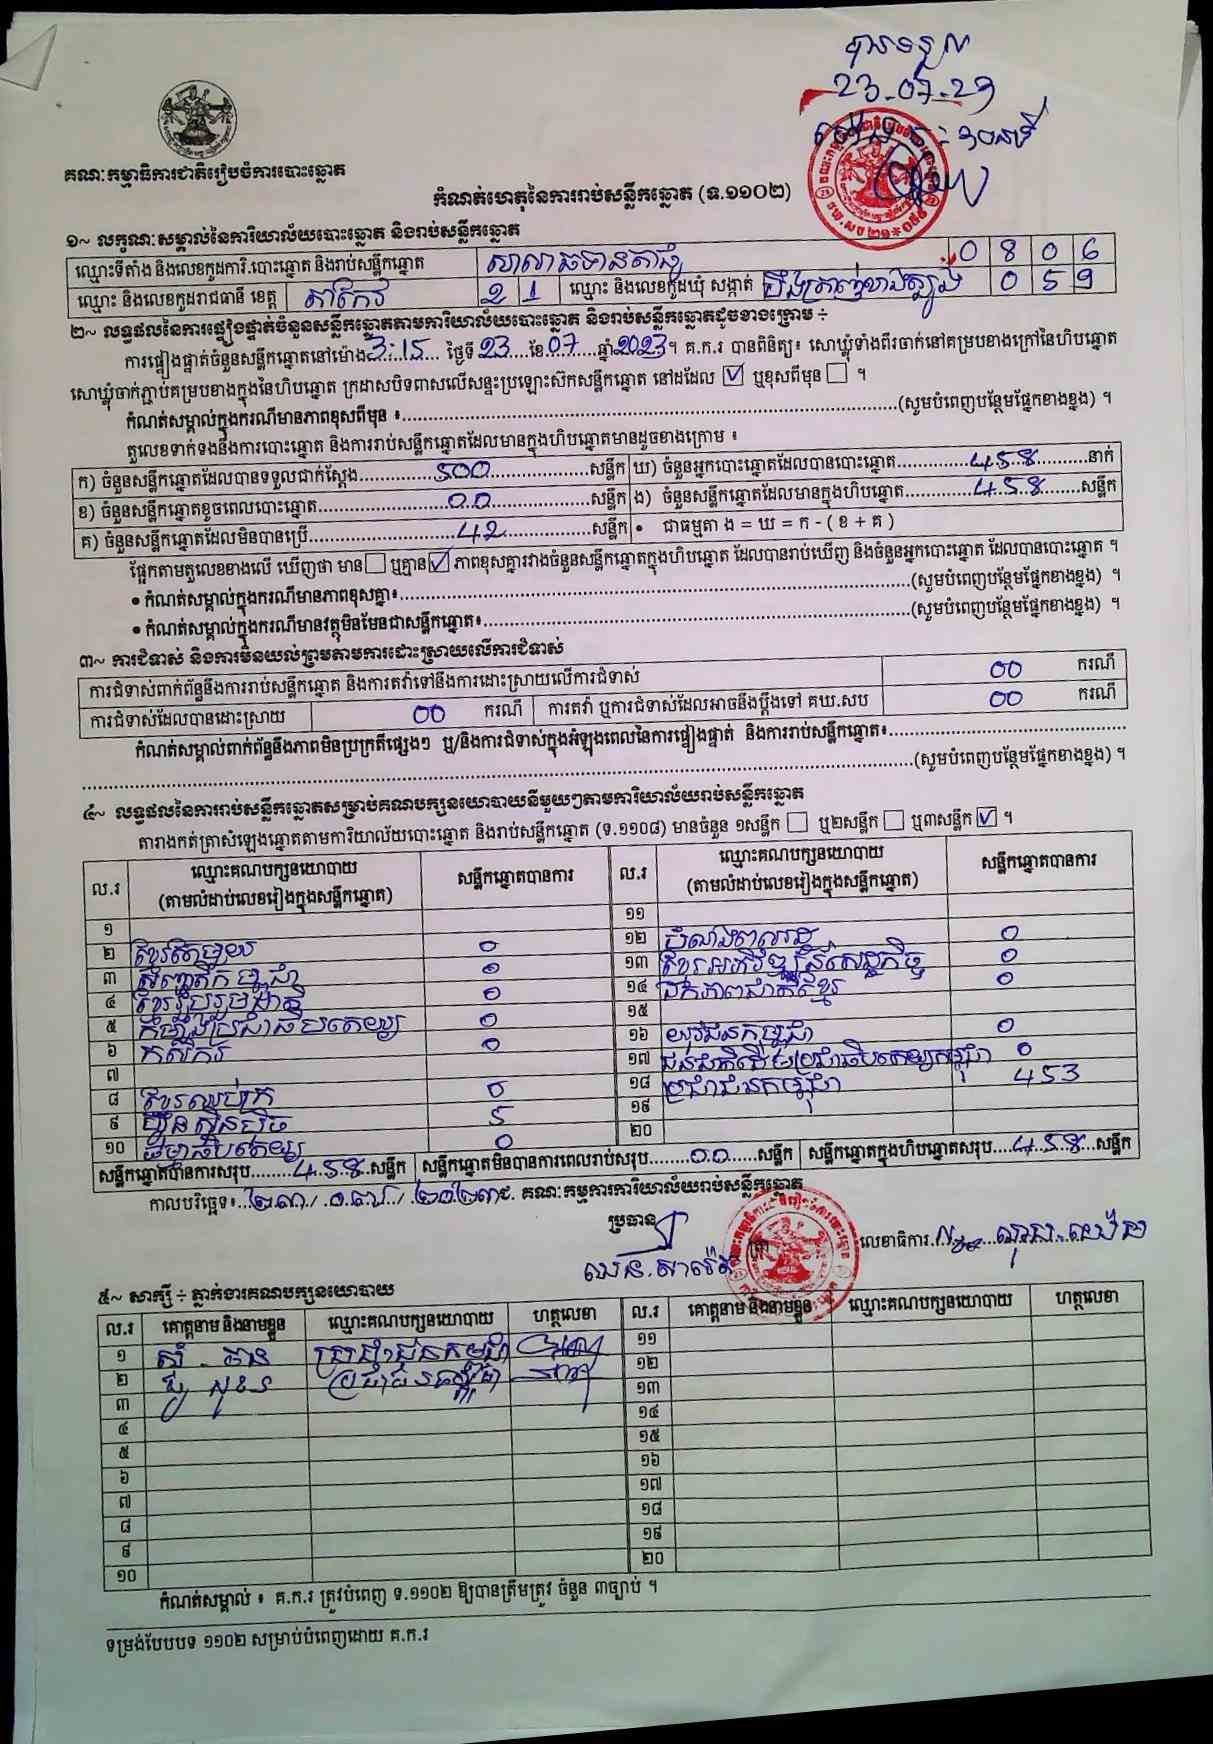 បានទទួល
23-07-23
គណៈកម្មាធិការជាតិរៀបចំការបោះឆ្នោត
កំណត់ហេតុនៃការរាប់សន្លឹកឆ្នោត (ទ.១១០២)
១~ លក្ខណៈសម្គាល់នៃការិយាល័យបោះឆ្នោត និងរាប់សន្លឹកឆ្នោត
ឈ្មោះទីតាំង និងលេខកូដការិ.បោះឆ្នោត និងរាប់សន្លឹកឆ្នោត សាលាឆទានតាផ្ 0 8 0 6
ឈ្មោះ និងលេខកូដរាជធានី ខេត្ត តាកែវ 2 1 ឈ្មោះ និងលេខកូដឃុំ សង្កាត់ បឹងត្រាញ់ខាងត្បូង 0 5 9
២~ លទ្ធផលនៃការផ្ទៀងផ្ទាត់ចំនួនសន្លឹកឆ្នោតតាមការិយាល័យបោះឆ្នោត និងរាប់សន្លឹកឆ្នោតដូចខាងក្រោម ÷
ការផ្ទៀងផ្ទាត់ចំនួនសន្លឹកឆ្នោតនៅម៉ោង 3:15 ថ្ងៃទី 23 ខែ 07 ឆ្នាំ 2023 ។ គ.ក.រ បានពិនិត្យ៖ សោឃ្លុំទាំងពីរចាក់នៅគម្របខាងក្រៅនៃហិបឆ្នោត
សោឃ្លុំចាក់ភ្ជាប់គម្របខាងក្នុងនៃហិបឆ្នោត ក្រដាសបិទពាសលើសន្ទះប្រឡោះស៊កសន្លឹកឆ្នោត នៅដដែល ☑ ឬខុសពីមុន ☐ ។
កំណត់សម្គាល់ក្នុងករណីមានភាពខុសពីមុន ៖ (សូមបំពេញបន្ថែមផ្នែកខាងខ្នង) ។
តួលេខទាក់ទងនឹងការបោះឆ្នោត និងការរាប់សន្លឹកឆ្នោតដែលមានក្នុងហិបឆ្នោតមានដូចខាងក្រោម ៖
ក) ចំនួនសន្លឹកឆ្នោតដែលបានទទួលជាក់ស្ដែង 500 សន្លឹក ឃ) ចំនួនអ្នកបោះឆ្នោតដែលបានបោះឆ្នោត 458 នាក់
ខ) ចំនួនសន្លឹកឆ្នោតខូចពេលបោះឆ្នោត 00 សន្លឹក ង) ចំនួនសន្លឹកឆ្នោតដែលមានក្នុងហិបឆ្នោត 458 សន្លឹក
គ) ចំនួនសន្លឹកឆ្នោតដែលមិនបានប្រើ 42 សន្លឹក • ជាធម្មតា ង = ឃ = ក - ( ខ + គ )
ផ្អែកតាមតួលេខខាងលើ ឃើញថា មាន ☐ ឬគ្មាន ☑ ភាពខុសគ្នារវាងចំនួនសន្លឹកឆ្នោតក្នុងហិបឆ្នោត ដែលបានរាប់ឃើញ និងចំនួនអ្នកបោះឆ្នោត ដែលបានបោះឆ្នោត ។
• កំណត់សម្គាល់ក្នុងករណីមានភាពខុសគ្នា៖ (សូមបំពេញបន្ថែមផ្នែកខាងខ្នង) ។
• កំណត់សម្គាល់ក្នុងករណីមានវត្ថុមិនមែនជាសន្លឹកឆ្នោត៖ (សូមបំពេញបន្ថែមផ្នែកខាងខ្នង) ។
៣~ ការជំទាស់ និងការមិនយល់ព្រមតាមការដោះស្រាយលើការជំទាស់
ការជំទាស់ពាក់ព័ន្ធនឹងការរាប់សន្លឹកឆ្នោត និងការតវ៉ាទៅនឹងការដោះស្រាយលើការជំទាស់ 00 ករណី
ការជំទាស់ដែលបានដោះស្រាយ 00 ករណី ការតវ៉ា ឬការជំទាស់ដែលអាចនឹងប្ដឹងទៅ គឃ.សប 00 ករណី
កំណត់សម្គាល់ពាក់ព័ន្ធនឹងភាពមិនប្រក្រតីផ្សេងៗ ឬ/និងការជំទាស់ក្នុងអំឡុងពេលនៃការផ្ទៀងផ្ទាត់ និងការរាប់សន្លឹកឆ្នោត៖
(សូមបំពេញបន្ថែមផ្នែកខាងខ្នង) ។
៤~ លទ្ធផលនៃការរាប់សន្លឹកឆ្នោតសម្រាប់គណបក្សនយោបាយនីមួយៗតាមការិយាល័យរាប់សន្លឹកឆ្នោត
តារាងកត់ត្រាសំឡេងឆ្នោតតាមការិយាល័យបោះឆ្នោត និងរាប់សន្លឹកឆ្នោត (ទ.១១០៨) មានចំនួន ១សន្លឹក ☐ ឬ២សន្លឹក ☐ ឬ៣សន្លឹក ☑ ។
ល.រ ឈ្មោះគណបក្សនយោបាយ (តាមលំដាប់លេខរៀងក្នុងសន្លឹកឆ្នោត) សន្លឹកឆ្នោតបានការ ល.រ ឈ្មោះគណបក្សនយោបាយ (តាមលំដាប់លេខរៀងក្នុងសន្លឹកឆ្នោត) សន្លឹកឆ្នោតបានការ
១ ១១
២ ខ្មែរតែមួយ 0 ១២ សំណាងពលរដ្ឋ 0
៣ សញ្ជាតិកម្ពុជា 0 ១៣ ខ្មែរអភិវឌ្ឍន៍សេដ្ឋកិច្ច 0
៤ ខ្មែររួបរួមជាតិ 0 ១៤ ឯកភាពជាតិខ្មែរ 0
៥ កម្លាំងប្រជាធិបតេយ្យ 0 ១៥
៦ កសិករ 0 ១៦ យុវជនកម្ពុជា 0
៧ ១៧ ជនជាតិដើមប្រជាធិបតេយ្យកម្ពុជា 0
៨ ខ្មែរឈប់ក្រ 0 ១៨ ប្រជាជនកម្ពុជា 453
៩ ហ៊្វុនស៊ិនប៉ិច 5 ១៩
១០ ធម្មាធិបតេយ្យ 0 ២០
សន្លឹកឆ្នោតបានការសរុប 458 សន្លឹក សន្លឹកឆ្នោតមិនបានការពេលរាប់សរុប 00 សន្លឹក សន្លឹកឆ្នោតក្នុងហិបឆ្នោតសរុប 458 សន្លឹក
កាលបរិច្ឆេទ៖ ២៣/០៧/២០២៣ គណៈកម្មការការិយាល័យរាប់សន្លឹកឆ្នោត
ប្រធាន ត្រា លេខាធិការ
៥~ សាក្សី ÷ ភ្នាក់ងារគណបក្សនយោបាយ
ល.រ គោត្តនាម និងនាមខ្លួន ឈ្មោះគណបក្សនយោបាយ ហត្ថលេខា ល.រ គោត្តនាម និងនាមខ្លួន ឈ្មោះគណបក្សនយោបាយ ហត្ថលេខា
១ ប្រជាជនកម្ពុជា ១១
២ ប្រជាជនកម្ពុជា ១២
៣ ១៣
៤ ១៤
៥ ១៥
៦ ១៦
៧ ១៧
៨ ១៨
៩ ១៩
១០ ២០
កំណត់សម្គាល់ ៖ គ.ក.រ ត្រូវបំពេញ ទ.១១០២ ឱ្យបានត្រឹមត្រូវ ចំនួន ៣ច្បាប់ ។
ទម្រង់បែបបទ ១១០២ សម្រាប់បំពេញដោយ គ.ក.រ